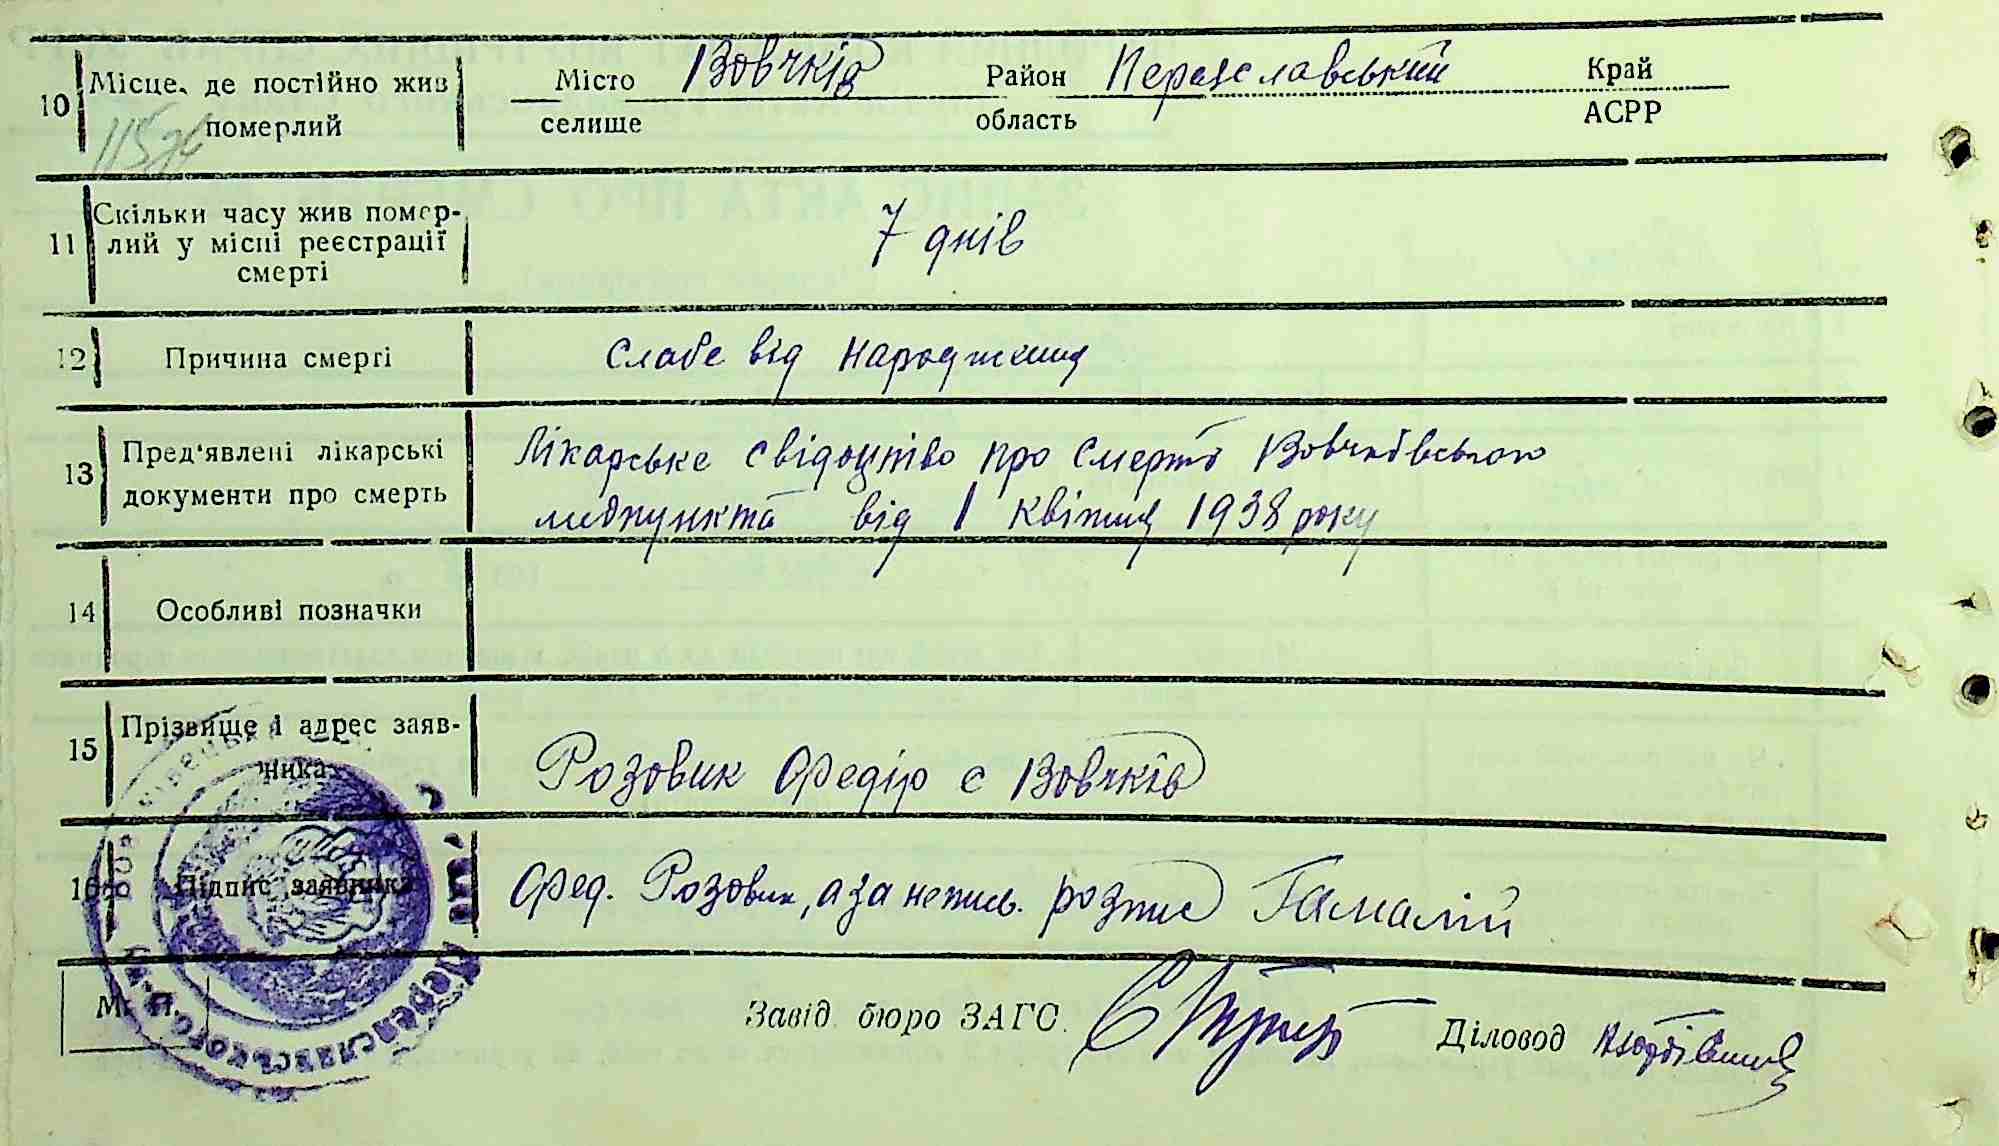 10 Місце, де постійно жив Місто Вовчків Район Переяславський Край
померлий селище область АСРР
11 Скільки часу жив помер-
лий у місці реєстрації 7 днів
смерті
12 Причина смерті Слабе від народження
13 Пред'явлені лікарські Лікарське свідоцтво про смерть Вовчківського
документи про смерть медпункта від 1 квітня 1938 року
14 Особливі позначки
15 Прізвище і адрес заяв-
ника Розовик Федір с Вовчків
16 Підпис заявника Фед. Розовик, а за непись. розпис Гамалій
М. П. Завід. бюро ЗАГС. Діловод
Переяславського